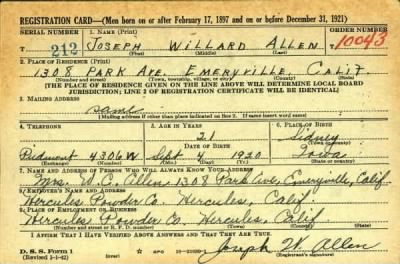 REGISTRATION CARD—(Men born on or after February 17, 1897 and on or before December 31, 1921)
SERIAL NUMBER 1. NAME (Print) ORDER NUMBER
T 212 JOSEPH WILLARD ALLEN 10043
(First) (Middle) (Last)
2. PLACE OF RESIDENCE (Print)
1308 PARK AVE. EMERYVILLE, CALIF.
(Number and street) (Town, township, village, or city) (County) (State)
[THE PLACE OF RESIDENCE GIVEN ON THE LINE ABOVE WILL DETERMINE LOCAL BOARD
JURISDICTION; LINE 2 OF REGISTRATION CERTIFICATE WILL BE IDENTICAL]
3. MAILING ADDRESS
same
[Mailing address if other than place indicated on line 2. If same insert word same]
4. TELEPHONE 5. AGE IN YEARS 6. PLACE OF BIRTH
21 Sidney
DATE OF BIRTH (Town or county)
Piedmont 4306W Sept 1920 Iowa
(Exchange) (Number) (Mo.) (Day) (Yr.) (State or country)
7. NAME AND ADDRESS OF PERSON WHO WILL ALWAYS KNOW YOUR ADDRESS
Mrs. W. C. Allen 1308 Park Ave, Emeryville, Calif.
8. EMPLOYER'S NAME AND ADDRESS
Hercules Powder Co. Hercules, Calif.
9. PLACE OF EMPLOYMENT OR BUSINESS
Hercules Powder Co. Hercules, Calif
(Number and street or R. F. D. number) (Town) (County) (State)
I AFFIRM THAT I HAVE VERIFIED ABOVE ANSWERS AND THAT THEY ARE TRUE.
D. S. S. Form 1
(Revised 1-1-42) (over) GPO Joseph W. Allen
(Registrant's signature)